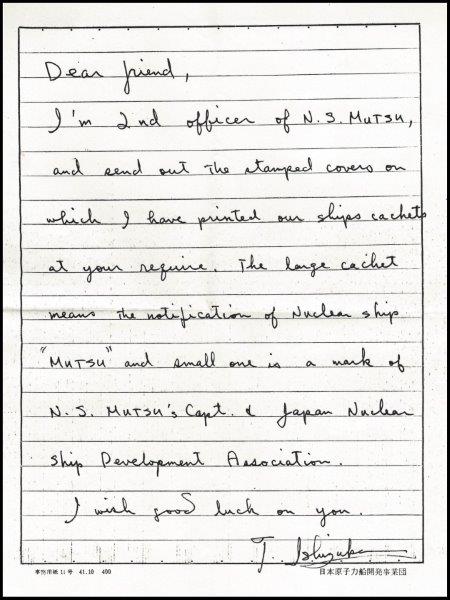 Dear friend,
I'm 2nd officer of N.S. MUTSU,
and send out the stamped covers on
which I have printed our ships cachets
at your require. The large cachet
means the notification of Nuclear ship
"MUTSU" and small one is a mark of
N.S. MUTSU's Capt. & Japan Nuclear
ship Development Association.
I wish good luck on you.
T. Ishizuka
事務用紙11号 41.10 400 日本原子力船開発事業団